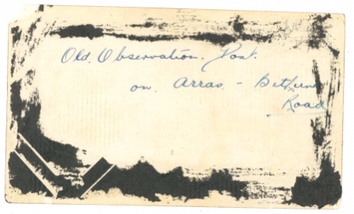 Old. Observation. Post.
on. Arras - Bethune
Road